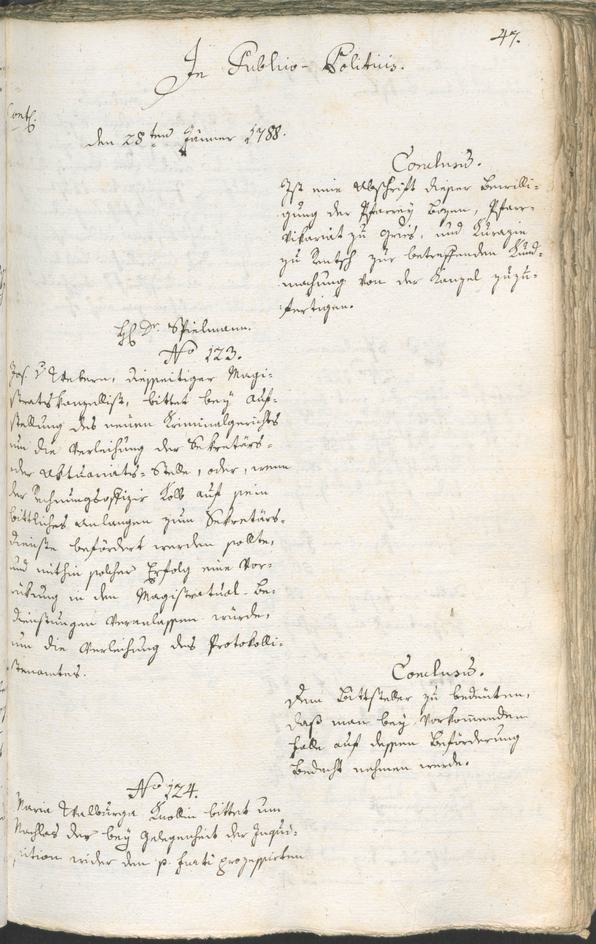 47.
In Publico-Politicis.
den 28ten Jänner 1788.
Conclusum.
Ist eine Abschrift dieser Bewilli-
gung der Pfarrey Bozen, Pfarr-
Vikariat zu Gries, und Kurazie
zu Rentsch zur betreffenden Kund-
machung von der Kanzel zuzu-
fertigen.
H. Dr. Spielmann.
No 123.
Jos. v Webern, diesseitiger Magi-
stratskanzellist, bittet bey Auf-
stellung des neuen Kriminalgerichts
um die Verleihung der Sekretärs-
oder Aktuariats-Stelle, oder, wenn
der Rechnungsoffizir Kolb auf sein
bittliches Anlangen zum Sekretärs-
Dienste befördert werden sollte,
und mithin solcher Erfolg eine Vor-
rükung in den Magistratual-Be-
dienstungen veranlassen würde,
um die Verleihung des Protokolli-
stenamtes.
Conclusum.
Dem Bittsteller zu bedeuten,
daß man bey vorkommenden
Falle auf dessen Beförderung
Bedacht nehmen werde.
No 124.
Maria Walburga Knollin bittet um
Nachlas der bey Gelegenheit der Inqui-
sition wider den p. furti prozessirten